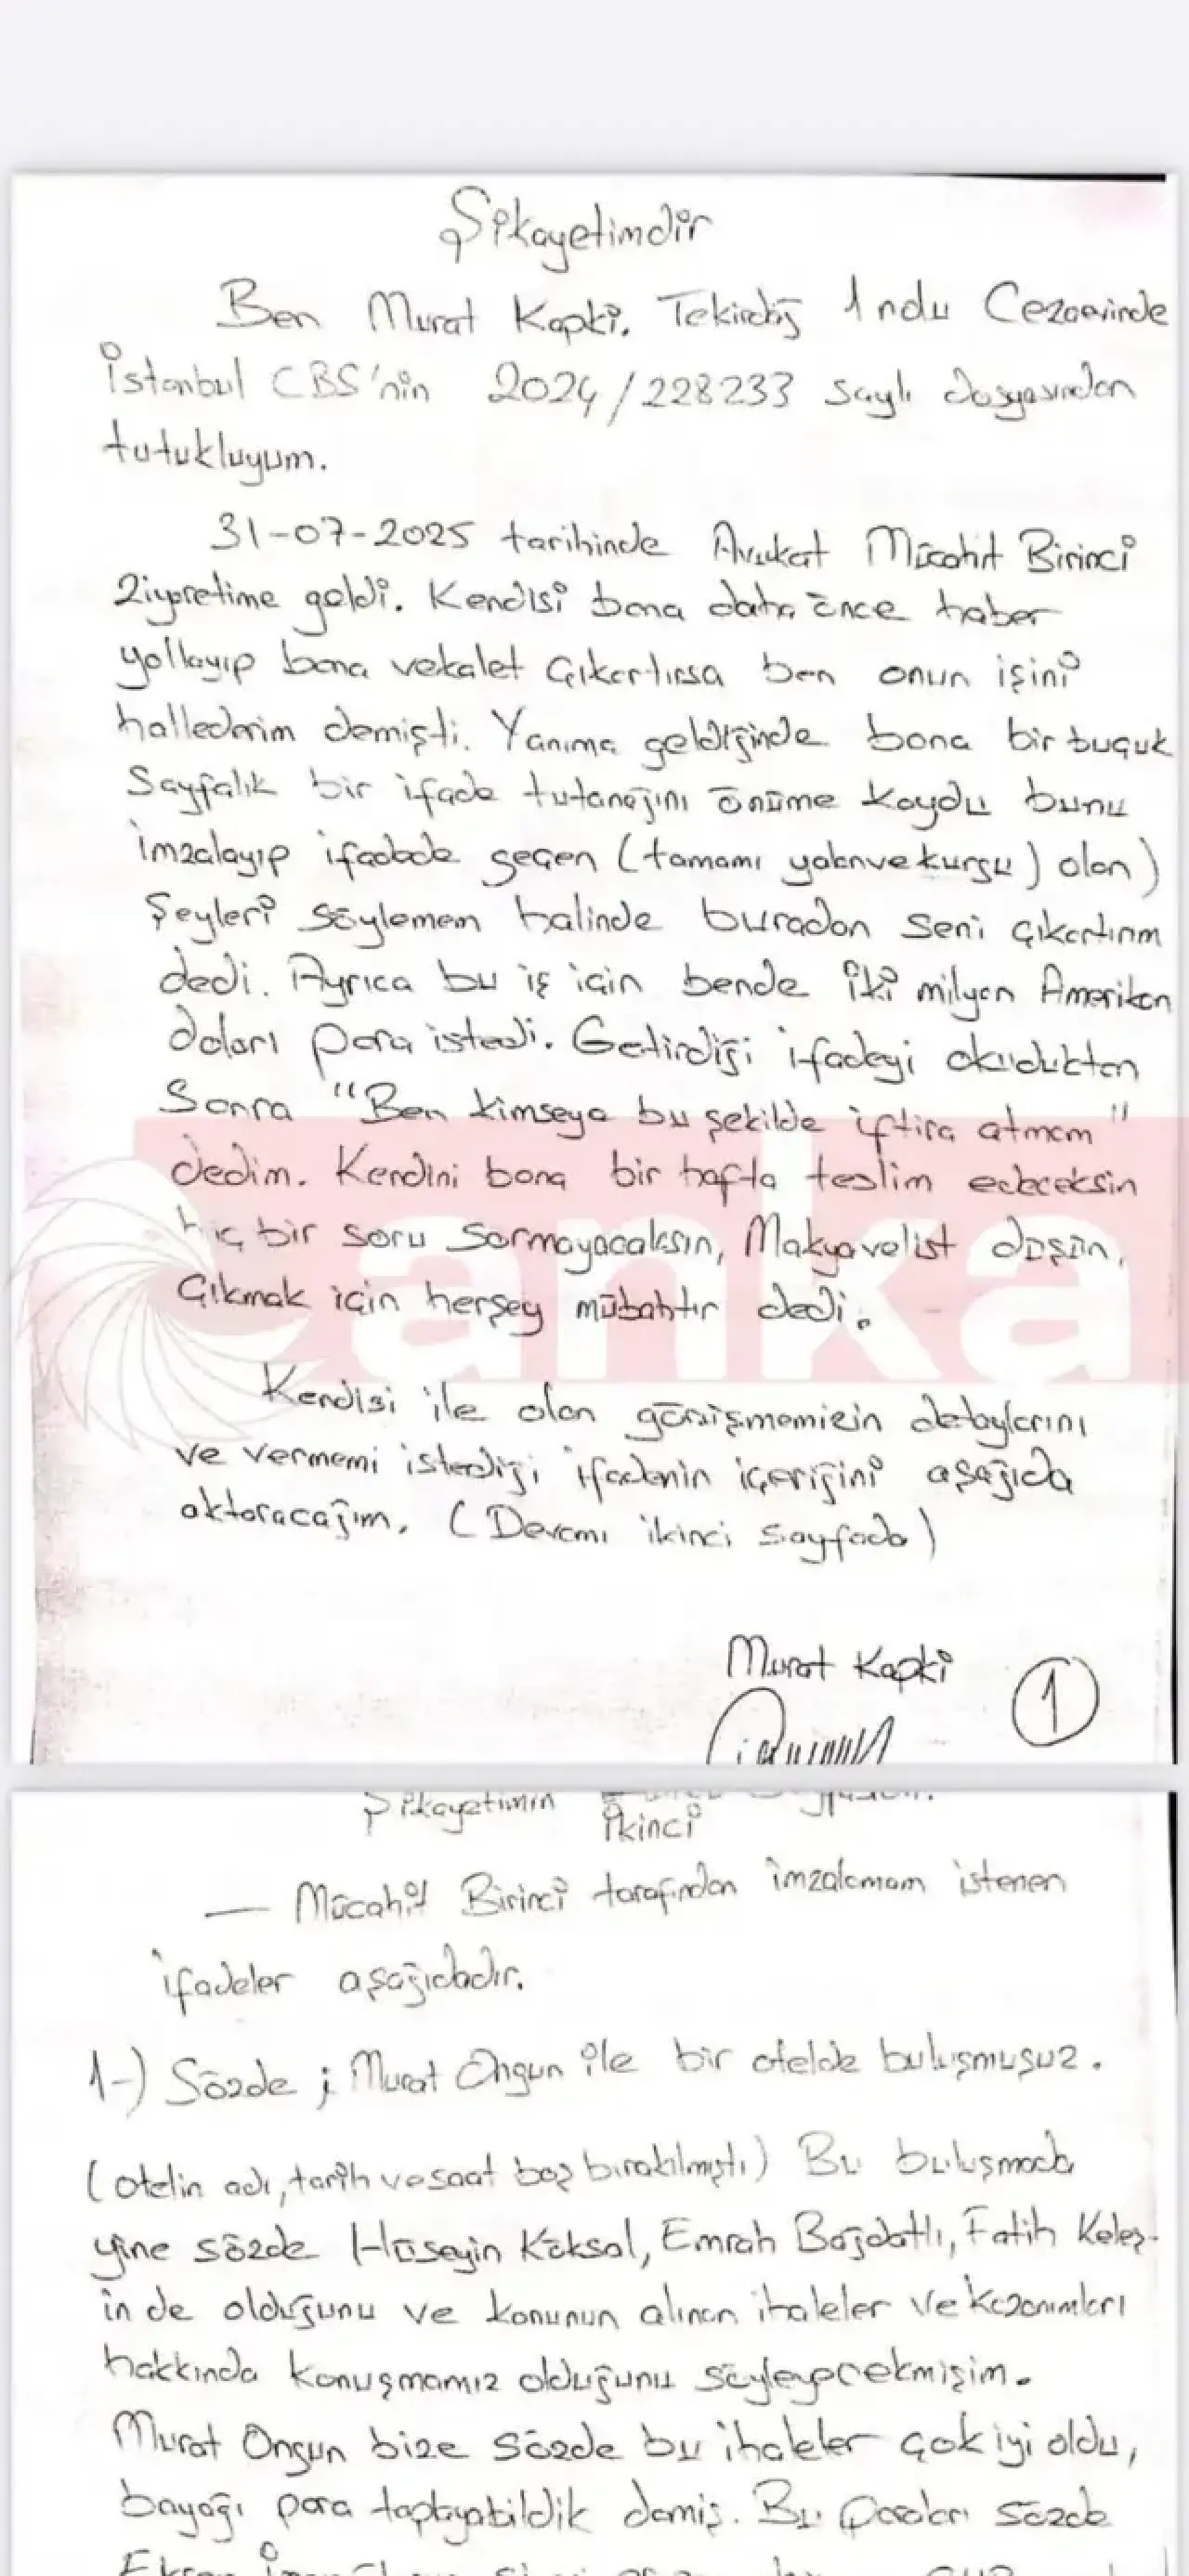 Şikayetimdir
Ben Murat Kapki. Tekirdağ 1 nolu Cezaevinde
İstanbul CBS'nin 2024/228233 sayılı dosyasından
tutukluyum.
31-07-2025 tarihinde Avukat Mücahit Birinci
Ziyaretime geldi. Kendisi bana daha önce haber
yollayıp bana vekalet çıkartırsa ben onun işini
hallederim demişti. Yanıma geldiğinde bana bir buçuk
Sayfalık bir ifade tutanağını önüme koydu bunu
imzalayıp ifadede geçen (tamamı yalan ve kurgu) olan)
Şeyleri söylemem halinde buradan seni çıkartırım
dedi. Ayrıca bu iş için bende iki milyon Amerikan
doları para istedi. Getirdiği ifadeyi okuduktan
Sonra "Ben kimseye bu şekilde iftira atmam"
dedim. Kendini bana bir hafta teslim edeceksin
hiç bir soru sormayacaksın, Makyavelist düşün,
Çıkmak için herşey mübahtır dedi.
Kendisi ile olan görüşmemizin detaylarını
ve vermemi istediği ifadenin içeriğini aşağıda
aktaracağım. (Devamı ikinci sayfada)
Murat Kapki
1
anka
Şikayetimin
İkinci
— Mücahit Birinci tarafından imzalamam istenen
ifadeler aşağıdadır.
1-) Sözde ; Murat Ongun ile bir otelde buluşmuşuz.
(Otelin adı, tarih ve saat boş bırakılmıştı) Bu buluşmada
yine sözde Hüseyin Köksal, Emrah Bağdatlı, Fatih Keleş-
in de olduğunu ve konunun alınan ihaleler ve kazanımları
hakkında konuşmamız olduğunu söyleyecekmişim.
Murat Ongun bize sözde bu ihaleler çok iyi oldu,
bayağı para toplayabildik demiş. Bu paraları sözde